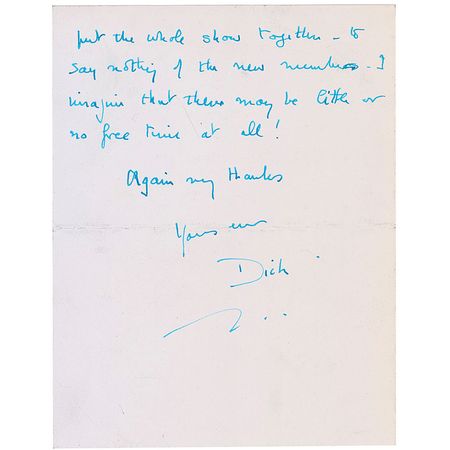 put the whole show together - to
say nothing of the new numbers - I
imagine that there may be little or
no free time at all!
Again my thanks
Yours ever
Dick